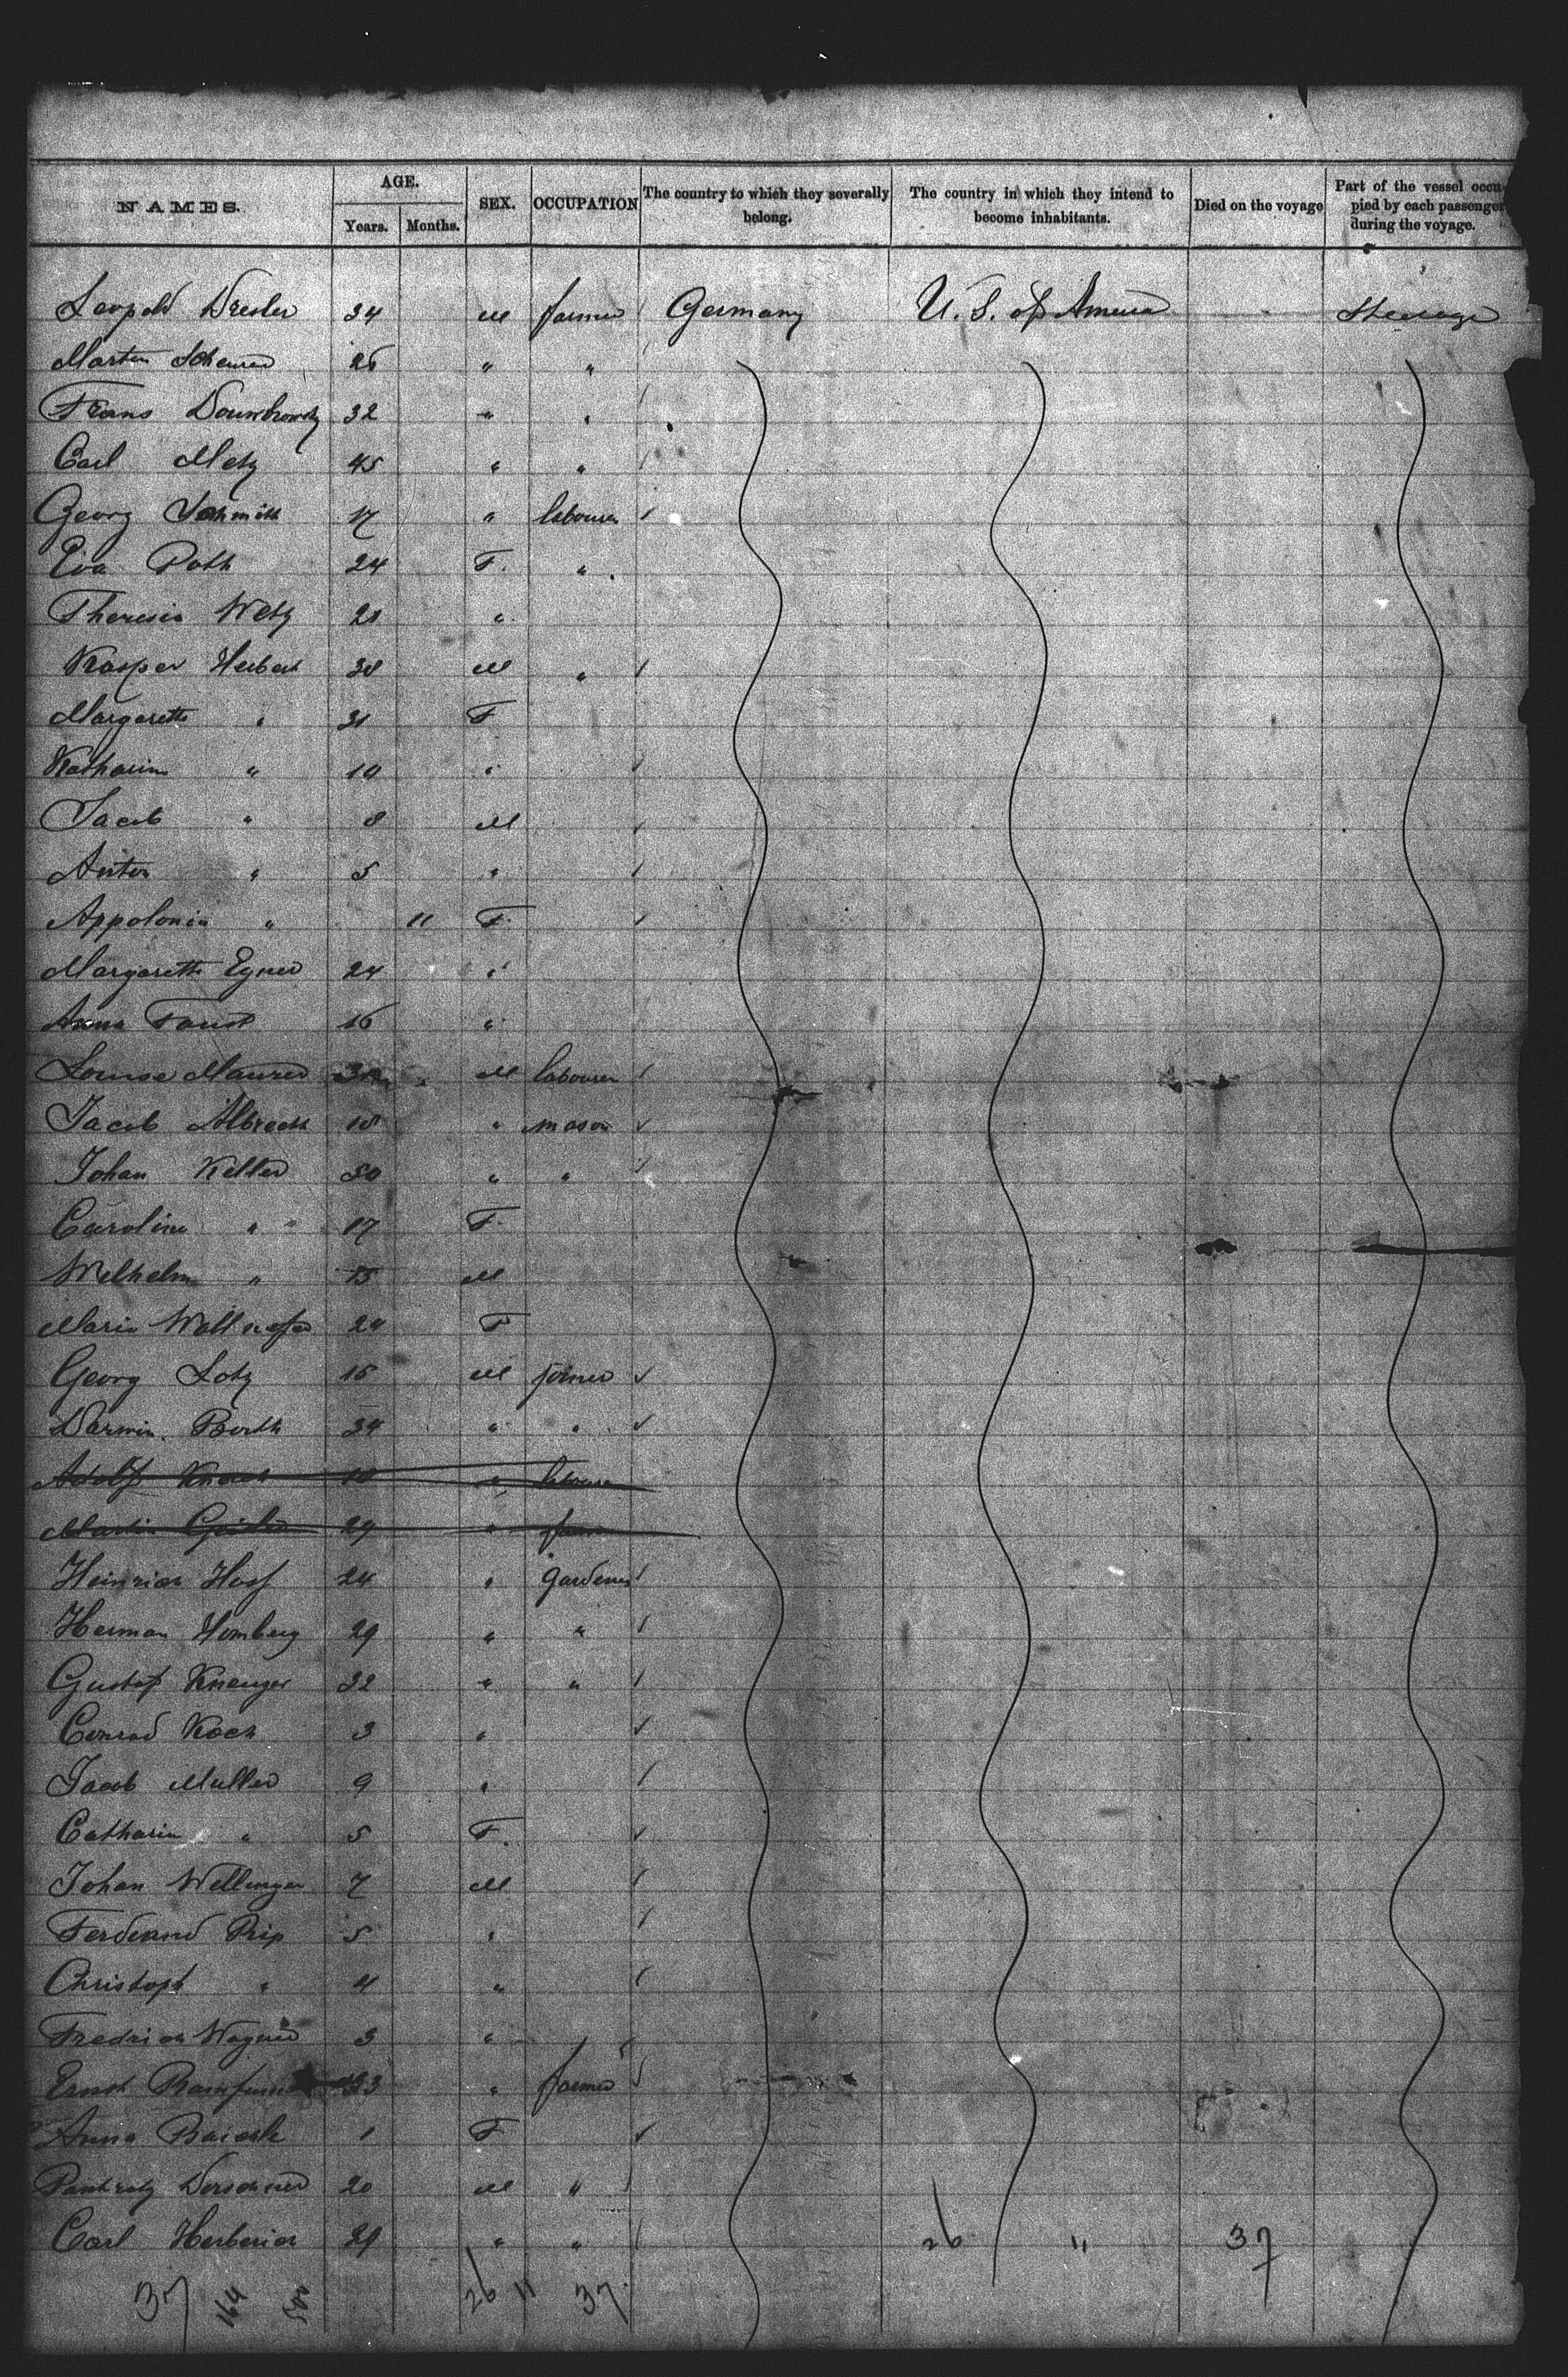 NAMES. AGE. SEX. OCCUPATION The country to which they severally belong. The country in which they intend to become inhabitants. Died on the voyage Part of the vessel occupied by each passenger during the voyage.
Years. Months.
Leopold Dresler 34 M farmer Germany U. S. of America Steerage
Martin Scheurer 26 " "
Frans Dombrowsky 32 " "
Carl Metz 45 " "
Georg Schmitt 17 " labourer
Eva Roth 24 F. "
Theresia Wetz 21 "
Kasper Herbert 38 M "
Margareth " 31 F
Katharina " 10 "
Jacob " 8 M
Anton " 5 "
Appolonia " 11 F.
Margareth Egner 24 "
Anna Faust 16 "
Louise Maurer M labourer
Jacob Albrecht 18 " mason
Johan Keller 50 " "
Caroline " " 17 F.
Wilhelm " 15 M
Marie 24 F
Georg Lotz 16 M joiner
Barth 34 " "
Adolf " labourer
Martin 29 " farmer
Heinrich Hoff 24 " gardener
Herman Homberg 29 " "
Gustaf 32 " "
Conrad Koch 3 "
Jacob Muller 9 "
Catharin " 5 F.
Johan Wellinger 7 M
Ferdeand Rip 5 "
Christoph " 4 "
Fredrich Wagner 3 "
Ernst 23 " farmer
Anna 1 F
20 M "
Carl 29 " " 26 11 37
37 164 26 11 37